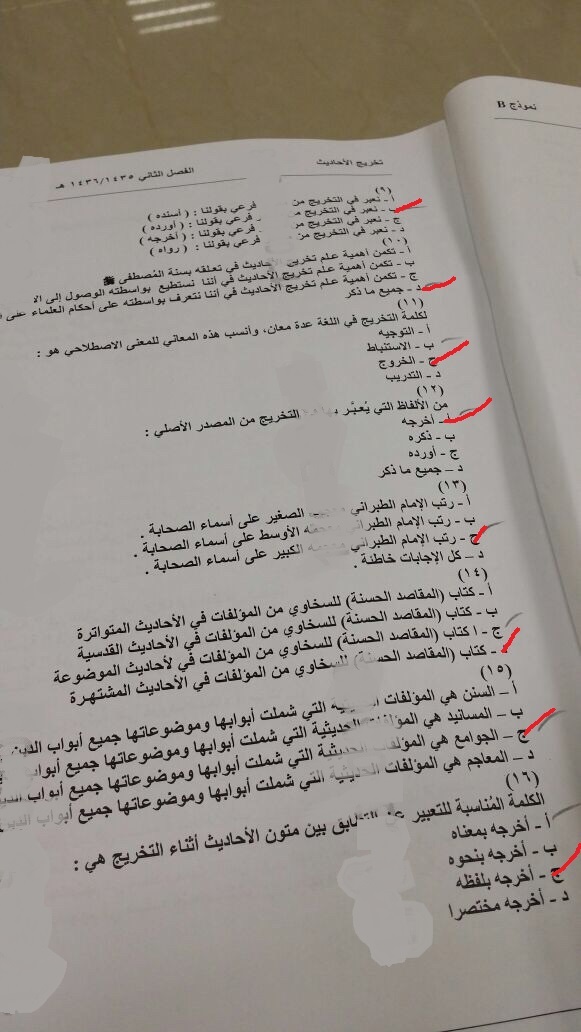 نموذج B
تخريج الأحاديث
الفصل الثاني ١٤٣٦/١٤٣٥ هـ
(٩)
أ - نعبر في التخريج من فرعي بقولنا : ( أسنده )
ب - نعبر في التخريج فرعي بقولنا : ( أورده )
ج - نعبر في التخريج فرعي بقولنا : ( أخرجه )
د - نعبر في التخريج من فرعي بقولنا : ( رواه )
(١٠)
أ - تكمن أهمية علم تخريج في تعلقه بسنة المُصطفى ﷺ
ب - تكمن أهمية علم تخريج الأحاديث في أننا نستطيع بواسطته الوصول إلى
ج - تكمن أهمية علم تخريج الأحاديث في أننا نتعرف بواسطته على أحكام العلماء على
د - جميع ما ذكر
(١١)
لكلمة التخريج في اللغة عدة معان، وأنسب هذه المعاني للمعنى الاصطلاحي هو :
أ - التوجيه
ب - الاستنباط
ج - الخروج
د - التدريب
(١٢)
من الألفاظ التي يُعبَّر التخريج من المصدر الأصلي :
أ - أخرجه
ب - ذكره
ج - أورده
د – جميع ما ذكر
(١٣)
أ - رتب الإمام الطبراني الصغير على أسماء الصحابة .
ب - رتب الإمام الطبراني الأوسط على أسماء الصحابة .
ج - رتب الإمام الطبراني الكبير على أسماء الصحابة .
د – كل الإجابات خاطئة .
(١٤)
أ - كتاب (المقاصد الحسنة) للسخاوي من المؤلفات في الأحاديث المتواترة
ب - كتاب (المقاصد الحسنة) للسخاوي من المؤلفات في الأحاديث القدسية
ج - ا كتاب (المقاصد الحسنة) للسخاوي من المؤلفات في لأحاديث الموضوعة
- كتاب (المقاصد الحسنة) للسخاوي من المؤلفات في الأحاديث المشتهرة
(١٥)
أ – السنن هي المؤلفات التي شملت أبوابها وموضوعاتها جميع أبواب
ب – المسانيد هي المؤلفات الحديثية التي شملت أبوابها وموضوعاتها جميع أبواب
ج – الجوامع هي المؤلفات الحديثية التي شملت أبوابها وموضوعاتها جميع أبواب
د – المعاجم هي المؤلفات الحديثية التي شملت أبوابها وموضوعاتها جميع أبواب
(١٦)
الكلمة المُناسبة للتعبير عن التطابق بين متون الأحاديث أثناء التخريج هي :
أ - أخرجه بمعناه
ب - أخرجه بنحوه
ج - أخرجه بلفظه
د - أخرجه مختصرا